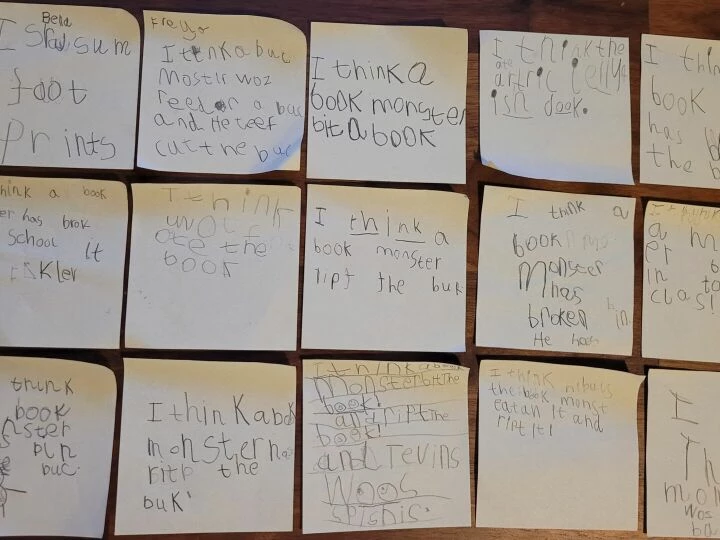 Bela
I saw sum
foot
prints
Freya
I think a buc
mostr woz
reed or a buc
and He teef
cut the buc
I think a
book monster
bit a book
I think the
ate
artric jelly
isn dook.
I thin
book
has
the b
hink a book
er has brok
school It
I think
wolf
ote the
book
I think a
book monster
ript the buk
I think a
book
Monster
has
broken in
He has
a m
er
in to
clas!
think
book
nster
buc.
I think a book
monster ha
ritp the
buk
I think a book
Monster bit the
book!
and ript The
book!
and
Woos
I think nibuls
the book monst
eatan it and
ript it!
I
Th
mon
wos